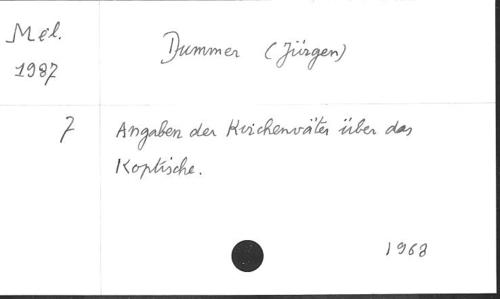 Mél.
1987
Dummer (Jürgen)
7
Angaben der Kirchenväter über das
Koptische.
1968